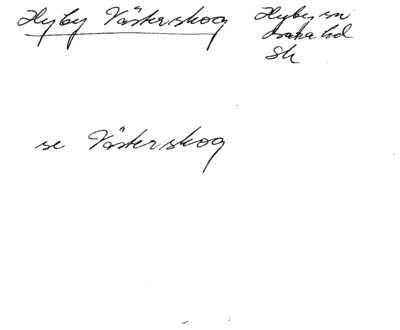 Hyby Västerskog
Hyby sn
Bara hd
Sk
se Västerskog